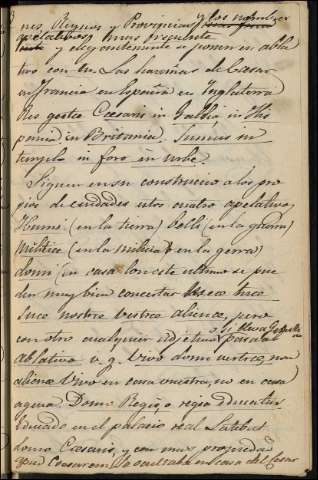 nes, Reynos, y Provincias, y los nombres
apelativos, mas frequente
y elegantemente se ponen en abla
tivo con in. Las hazañas de Cesar
en Francia en España en Inglaterra
Res gestæ Cæsaris in Gallia in His
pania in Britania. Sumus in
templo in foro in urbe.
Siguen en su construccio a los pro
pios de ciudades estos cuatro apelativos
Humi (en la tierra) Belli (en la guerra)
Militiæ (en la milicia ó en la gerra)
domi (en casa) con este ultimo se pue
den muy bien concertar meæ tuæ
suæ nostræ vestræ alienæ, pero
con otro cualquier adjetivo pasa al
Ablativo v. g. Vivo domi vestræ, non
alienæ Vivo en casa vuestra, no en casa
agena. Domo Regis, o regia educatus
Educado en el palacio real Latebat
domo Cæsaris, y con mas propiedad
apud Cæsarem, se ocultaba en casa del Cesar